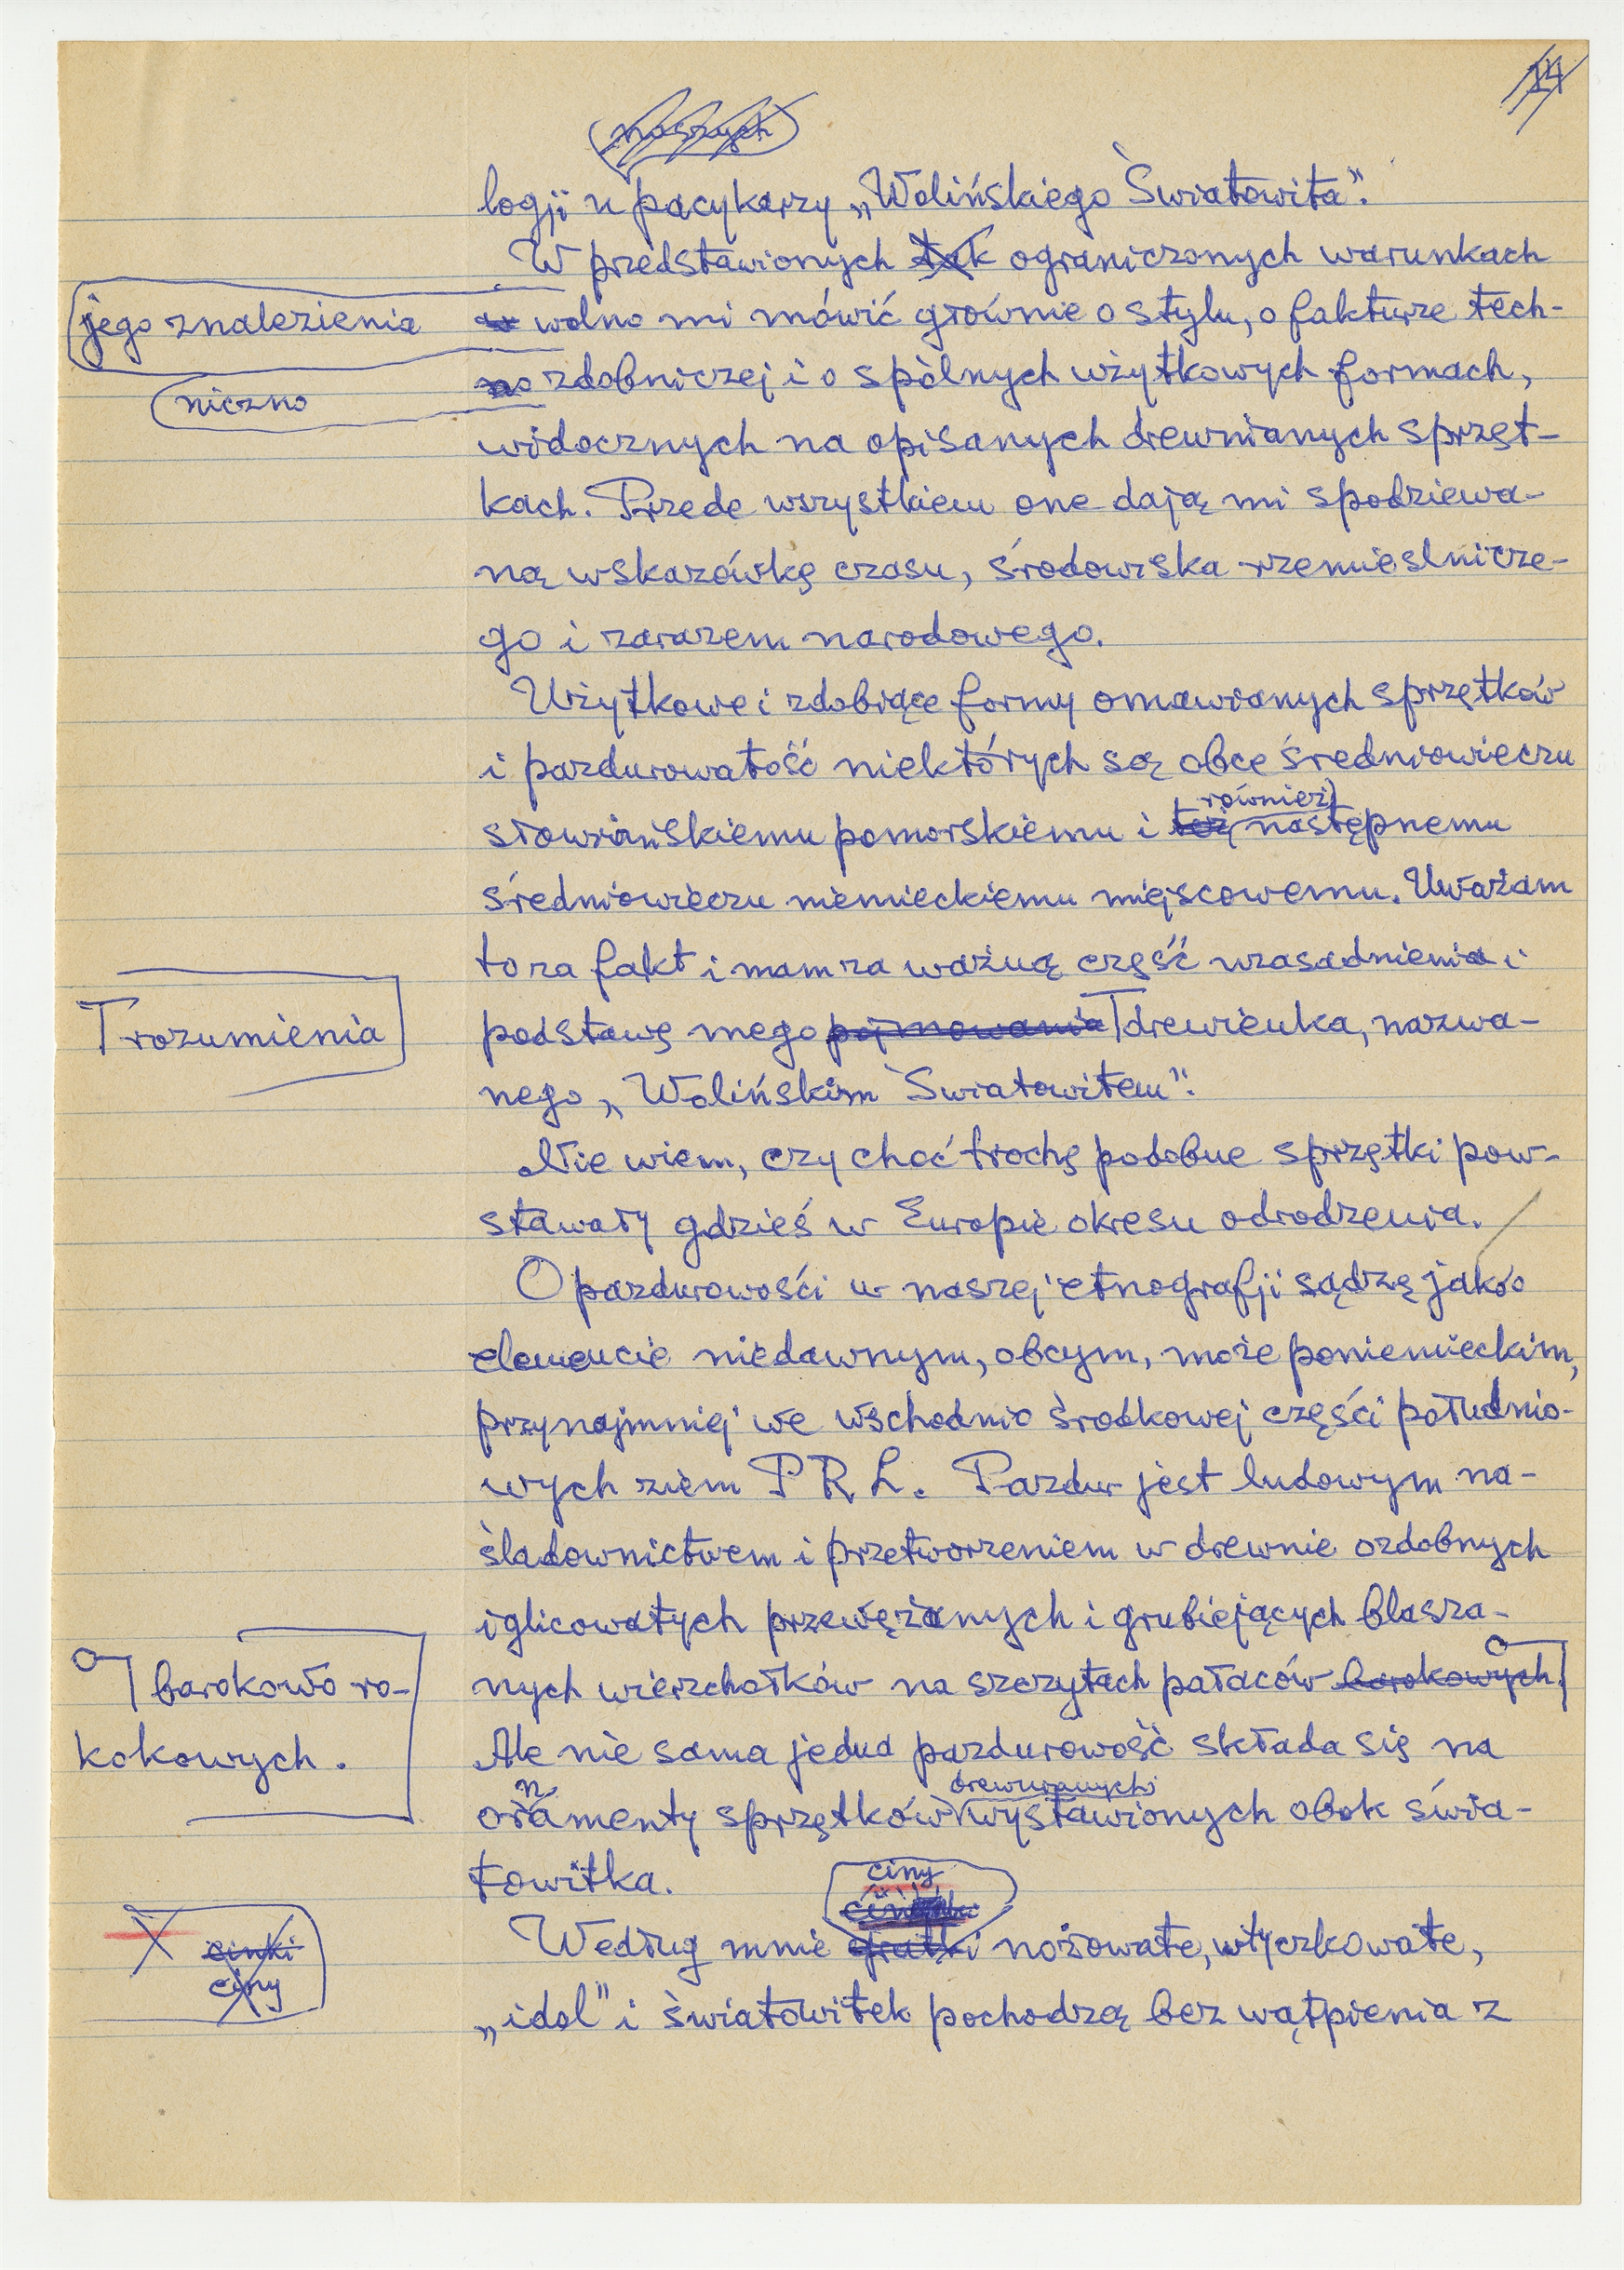 24
naszych
logji u pacykarzy „Wolińskiego Światowita”.
W przedstawionych tak ograniczonych warunkach
jego znalezienia
wolno mi mówić głównie o stylu, o fakturze tech-
niczno
no zdobniczej i o spólnych użytkowych formach,
widocznych na opisanych drewnianych sprzęt-
kach. Przede wszystkiem one dają mi spodziewa-
ną wskazówkę czasu, środowiska rzemieslnicze-
go i zarazem narodowego.
Użytkowe i zdobiące formy omawianych sprzętków
i pazdurowatość niektórych są obce średniowieczu
również
słowiańskiemu pomorskiemu i też następnemu
średniowieczu niemieckiemu miejscowemu. Uważam
to za fakt i mam za ważną część uzasadnienia i
rozumienia
podstawę mego pojmowania drewienka, nazwa-
nego „Wolińskim Światowitem”.
Nie wiem, czy choć trochę podobne sprzętki pow-
stawały gdzieś w Europie okresu odrodzenia.
O pazdurowości w naszej etnografji sądzę jako o
elemencie niedawnym, obcym, może poniemieckim,
przynajmniej we wschodnio środkowej części południo-
wych ziem PRL. Pazdur jest ludowym na-
śladownictwem i przetworzeniem w drewnie ozdobnych
iglicowatych przewężanych i grubiejących blasza-
barokowo ro-
nych wierzchołków na szczytach pałaców barokowych.
kokowych.
Ale nie sama jedna pazdurowość składa się na
n drewnianych
oramenty sprzętków wystawionych obok świa-
towitka.
ciny
cinki
ciny
Według mnie gratki nożowate, wtyczkowate,
„idol” i światowitek pochodzą bez wątpienia z